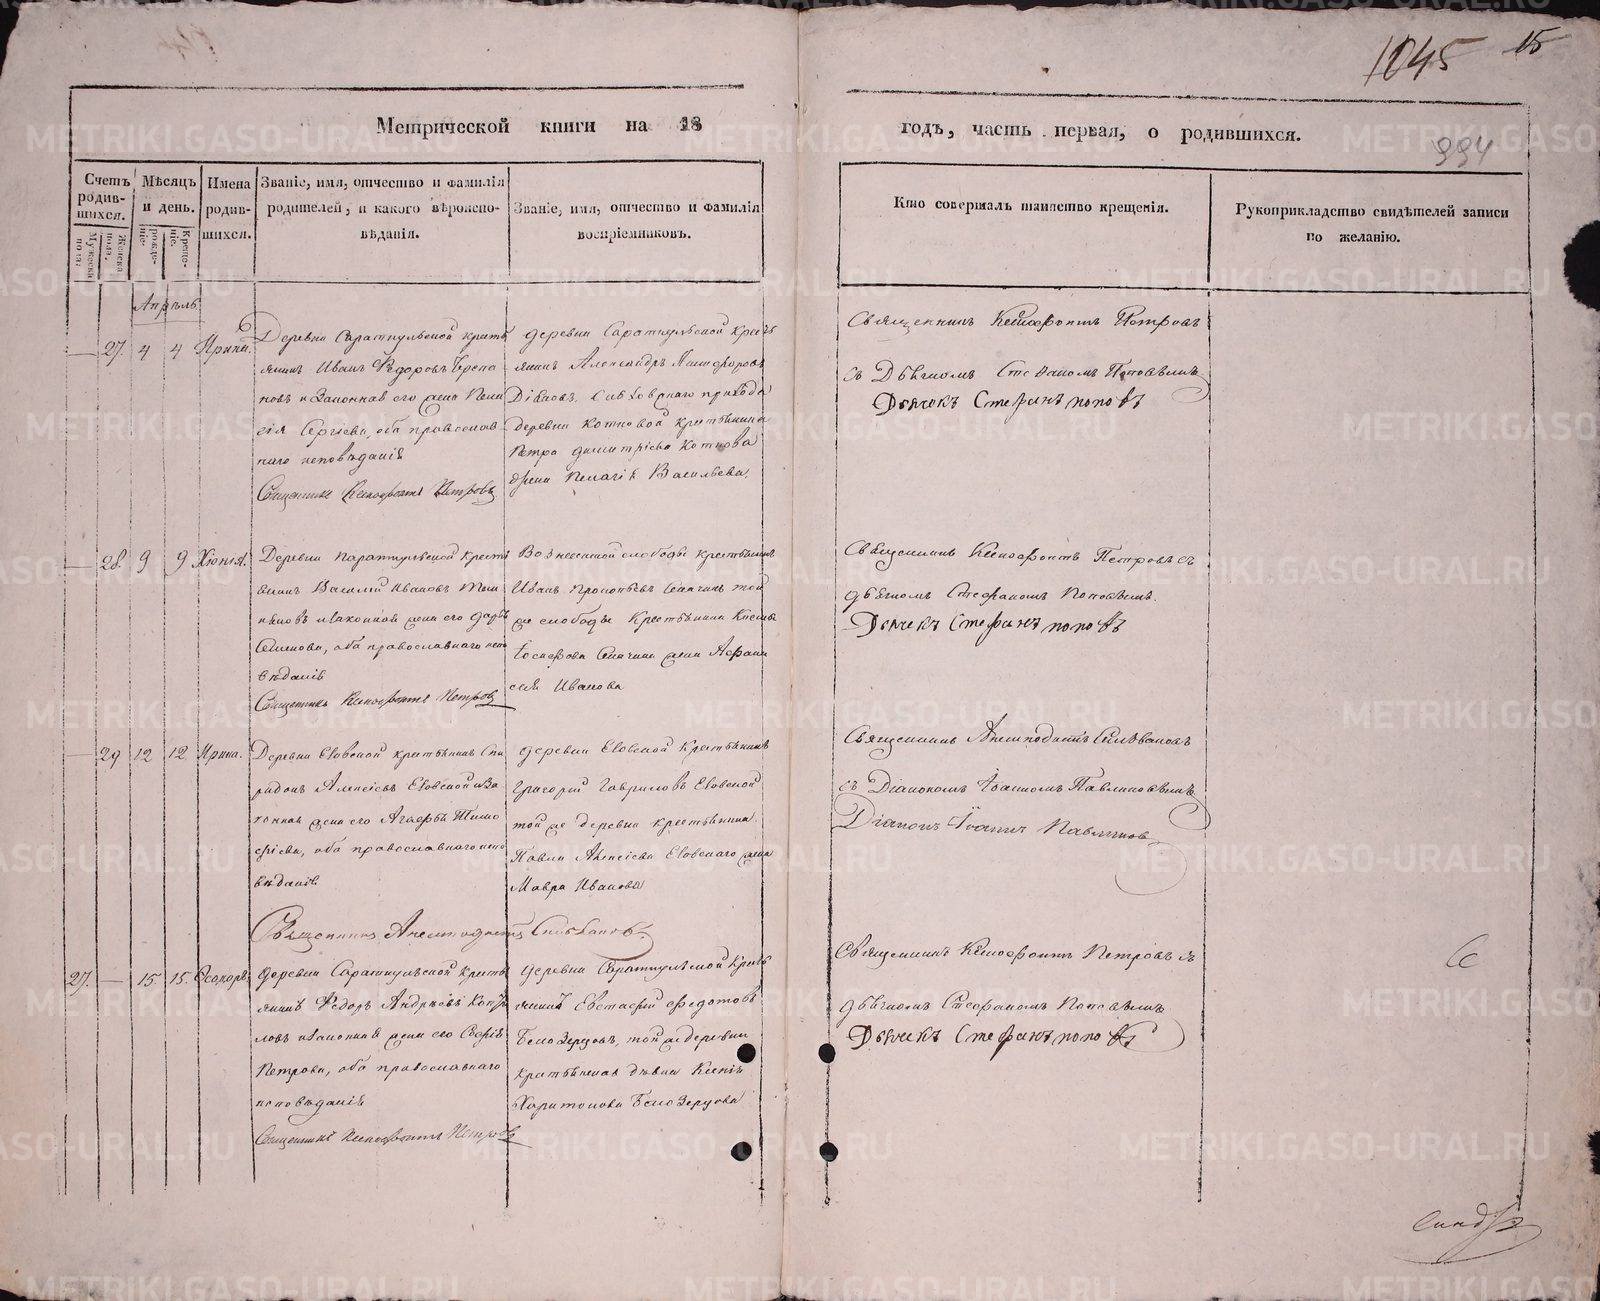 1045 15
Метрической книги на 18
годъ, часть первая, о родившихся.
994
Счетъ родив-шихся.
Мужеска пола.
Женска пола.
Мѣсяцъ и день.
рожде-нія.
Креще-нія.
Имена родив-шихся.
Званіе, имя, отчество и фамилія
родителей, и какого вѣроиспо-
вѣданія.
Званіе, имя, отчество и фамилія
воспріемниковъ.
Кто совершалъ таинство крещенія.
Рукоприкладство свидѣтелей записи
по желанію.
Апрѣль
— 27. 4 4 Ирина.
Деревни Саратульской кресть
янинъ Иванъ Ѳедоровъ
новъ и Законная его жена Пела
гія Сергіева, оба православ
наго исповѣданія
Священникъ Ксенофонтъ Петровъ
деревни Саратульской кресть
янинъ Александръ Никифоровъ
прихода
деревни Котковой крестьянина
Петра Димитріева Коткова
жена Пелагія Васильева.
Священникъ Ксенофонтъ Петровъ
съ Дьячкомъ Стефаномъ Поповымъ
Дьячекъ Стефанъ поповъ
— 28. 9 9
Деревни кресть
янинъ Василій Ивановъ
и законная жена его Дарья
Семенова, оба православнаго испо
вѣданія
Священникъ Ксенофонтъ Петровъ
Вознесенской слободы крестьянинъ
Иванъ Прокопьевъ той
же слободы Крестьянина
жена Афана
сія Иванова
Священникъ Ксенофонтъ Петровъ съ
дьячкомъ Стефаномъ Поповымъ.
Дьячекъ Стефанъ поповъ
— 29 12 12 Ирина.
Деревни Евовской крестьянинъ Спи
ридонъ Алексѣевъ Евовской и За
конная жена его Агафья Тимо
фѣева, оба православнаго испо
вѣданія
Священникъ Анемподистъ Сильвановъ
деревни Евовской Крестьянинъ
Григорій Гавриловъ Евовской
той же деревни крестьянина
Павла Алексѣева Евовскаго жена
Мавра Иванова
Священникъ Анемподистъ Сильвановъ
съ Діакономъ Іоанномъ Павлиновымъ
Діаконъ Іоаннъ Павлиновъ
27. — 15 15. Ѳеодоръ
деревни Саратульской кресть
янинъ Ѳедоръ Андреевъ Копы
ловъ и Законная жена его Софія
Петрова, оба православнаго
исповѣданія
Священникъ Ксенофонтъ Петровъ
деревни Саратульской кресть
янинъ Евстафій Федотовъ
Белозерцовъ, той же деревни
крестьянская дѣвка Ксенія
Харитонова Белозерцова
Священникъ Ксенофонтъ Петровъ съ
дьячкомъ Стефаномъ Поповымъ
Дьячекъ Стефанъ поповъ
METRIKI.GASO-URAL.RU